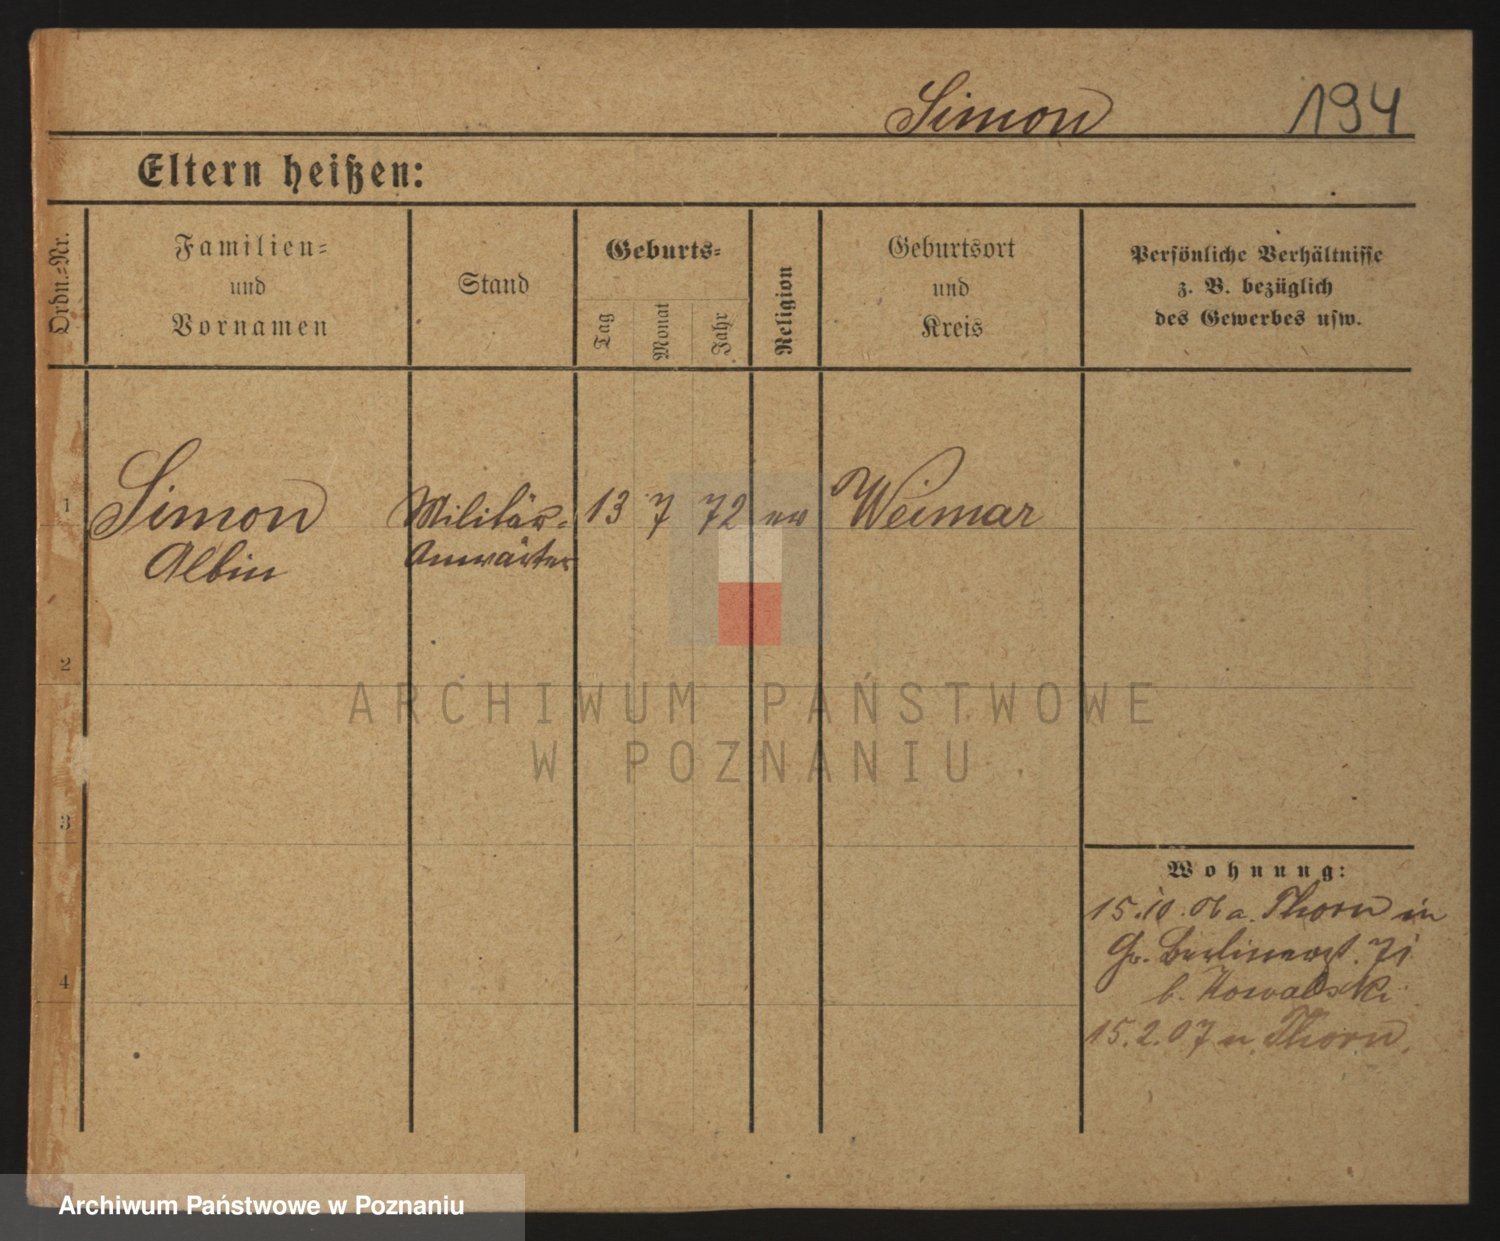 Simon 194
Eltern heißen:
Ordn.-Nr.
Familien-
und
Vornamen
Stand
Geburts-
Tag
Monat
Jahr
Religion
Geburtsort
und
Kreis
Persönliche Verhältnisse
z. B. bezüglich
des Gewerbes usw.
1 Simon Militär- 13 7 72 ev Weimar
Albin Anwärter
2
ARCHIWUM PAŃSTWOWE
W POZNANIU
3
Wohnung:
15.10.06 a. Thorn in
Gr. Berlinerst. 71
4
b. Kowalski
15.2.07 n. Thorn.
Archiwum Państwowe w Poznaniu